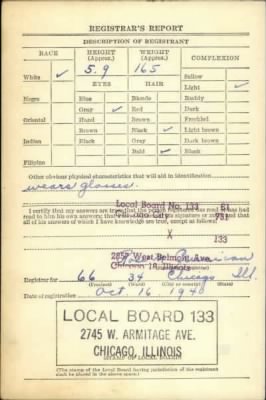 REGISTRAR'S REPORT
DESCRIPTION OF REGISTRANT
RACE HEIGHT (Approx.) WEIGHT (Approx.) COMPLEXION
White ✓ 5.9 165 Sallow
EYES HAIR Light ✓
Negro Blue Blonde Ruddy
Gray ✓ Red Dark
Oriental Hazel Brown Freckled
Brown Black ✓ Light brown
Indian Black Gray Dark brown
Bald ✓ Black
Filipino
Other obvious physical characteristics that will aid in identification
wears glasses.
I certify that my answers are true; that the person registered has read or has had
read to him his own answers; that I have witnessed his signature or mark and that
all of his answers of which I have knowledge are true, except as follows:
Local Board No. 133 61
Chicago City 031
X
133
2859 West Belmont Ave.
Chicago 18, Illinois
Registrar for 66 34 Chicago Ill.
(Precinct) (Ward) (City or county) (State)
Date of registration Oct. 16 1940
LOCAL BOARD 133
2745 W. ARMITAGE AVE.
CHICAGO, ILLINOIS
(The stamp of the Local Board having jurisdiction of the registrant
shall be placed in the above space.)